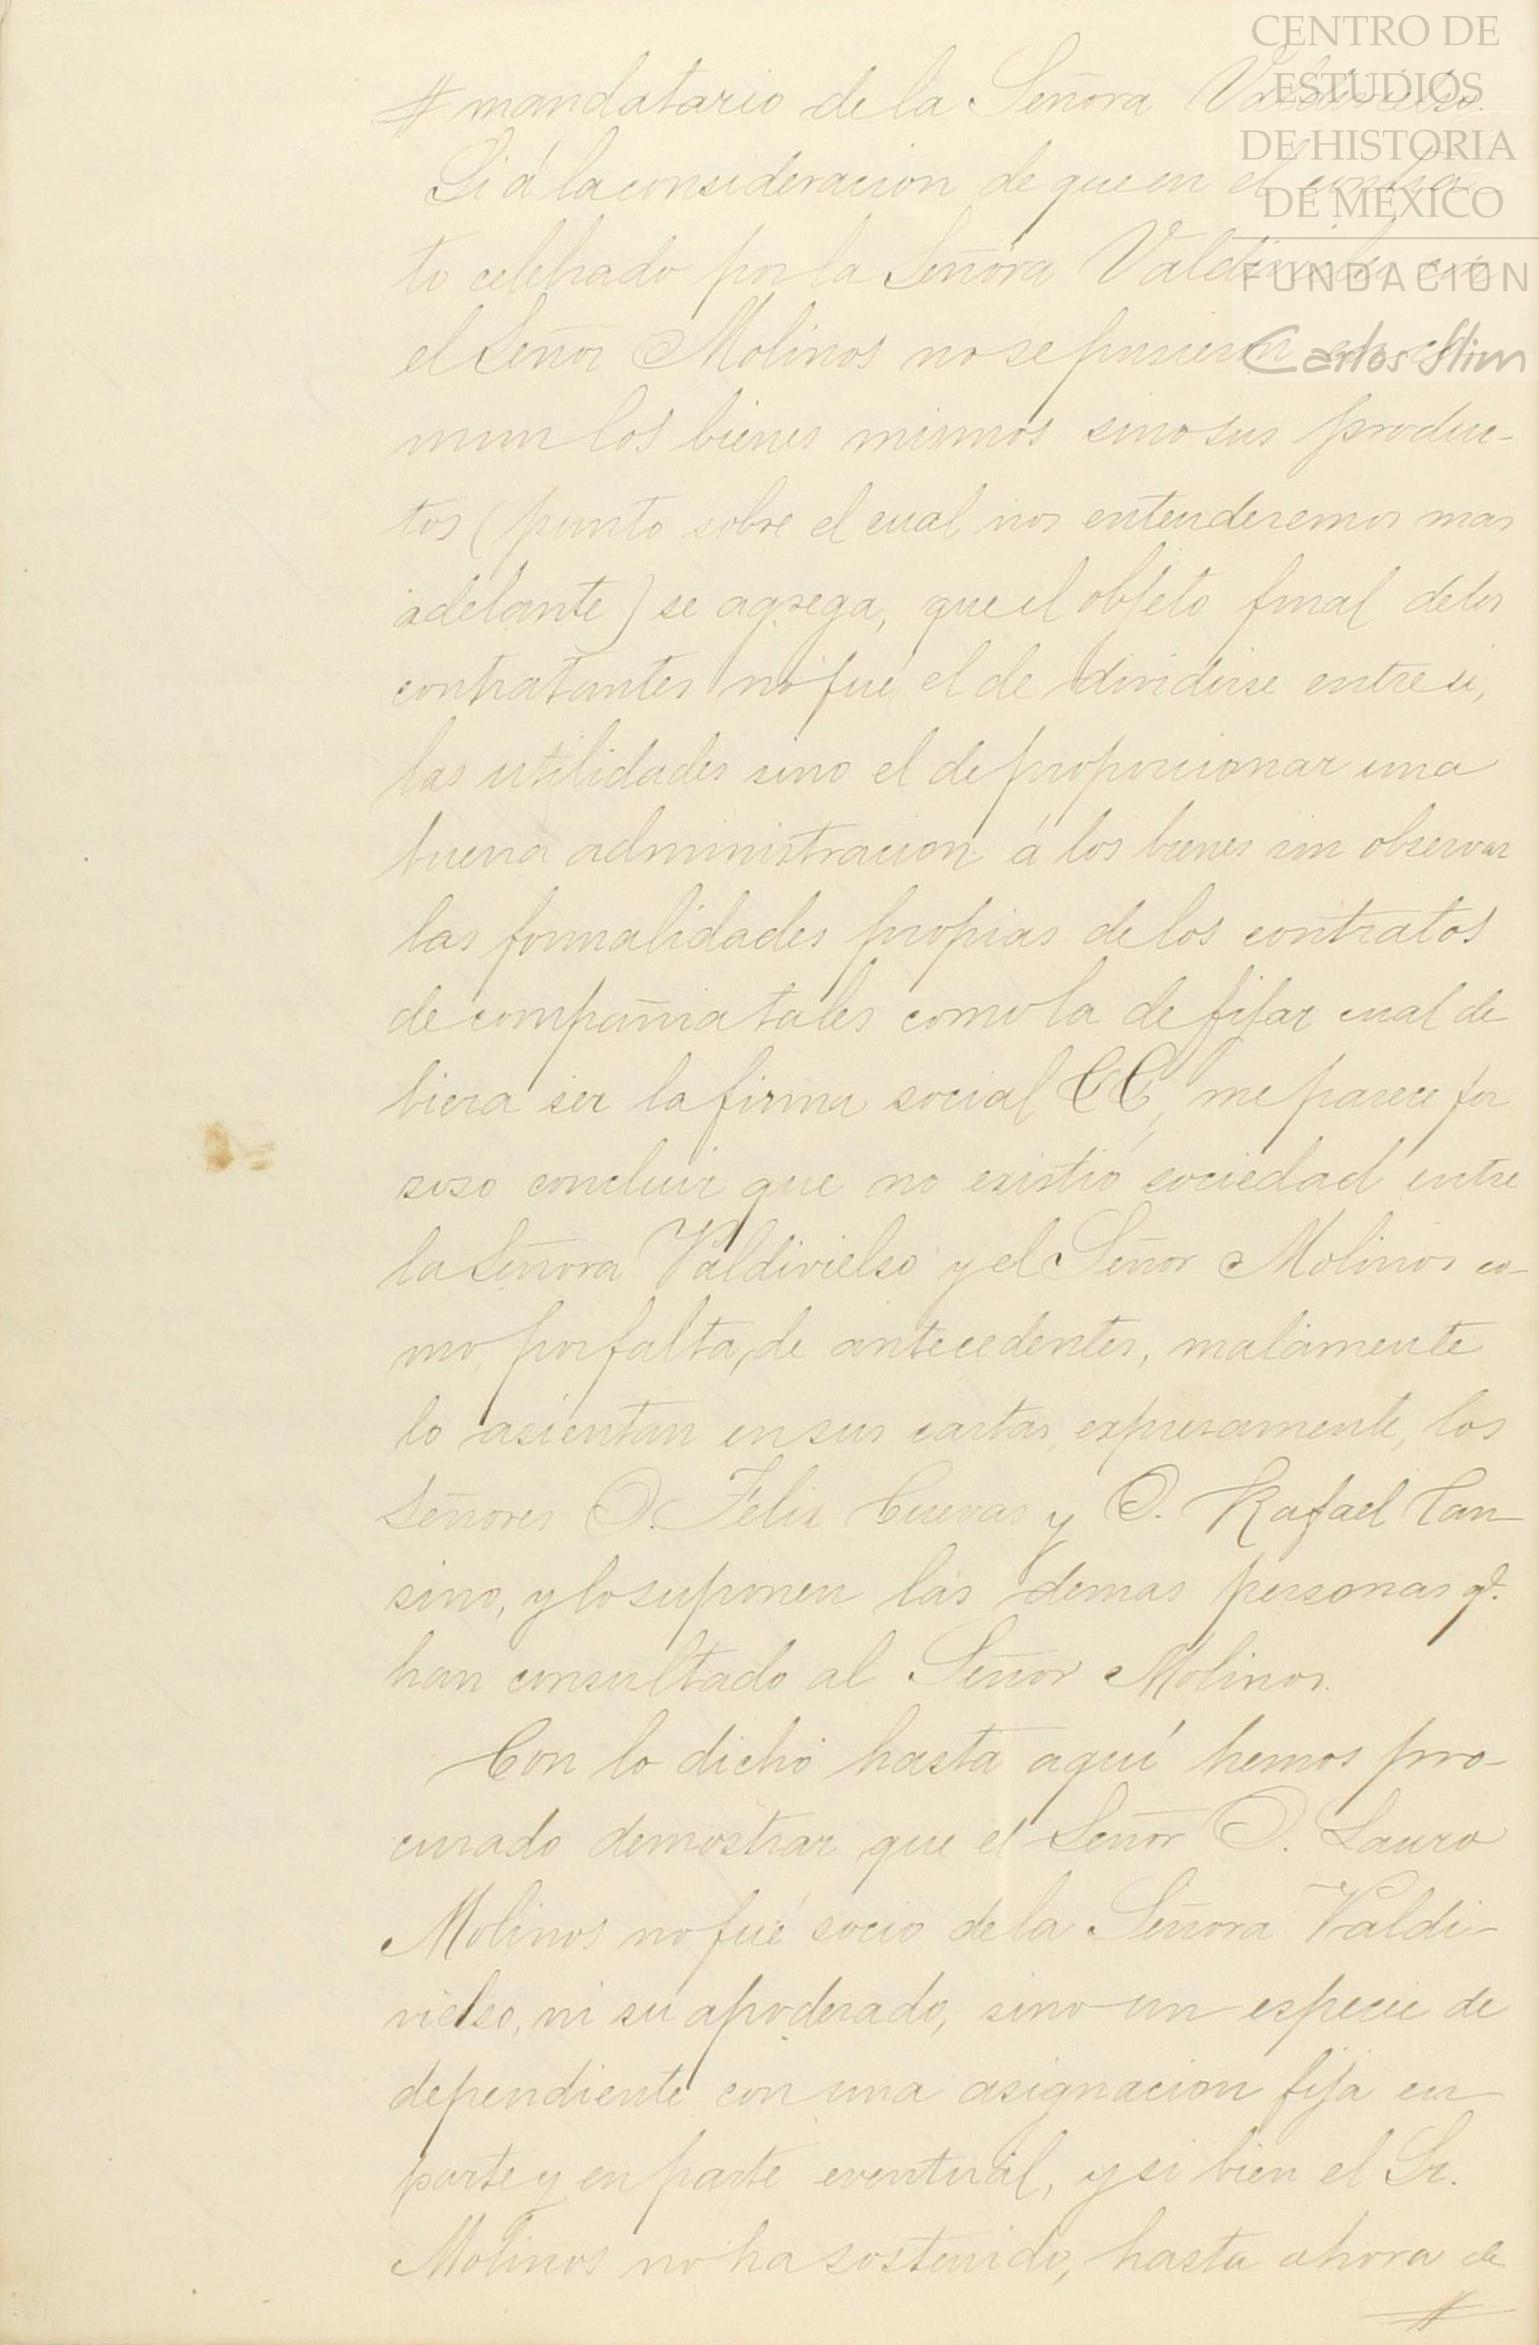 CENTRO DE
ESTUDIOS
DE HISTORIA
DE MEXICO
FUNDACION
Carlos Slim
# mandatario de la Señora Valdivielso.
Si á la consideracion de que en el contra-
to celebrado por la Señora Valdivielso con
el Señor Molinos no se pusieron en co-
mun los bienes mismos sino sus produc-
tos (punto sobre el cual nos entenderemos mas
adelante) se agrega, que el objeto final de los
contratantes no fué el de dividirse entre si,
las utilidades sino el de proporcionar una
buena administracion á los bienes sin observar
las formalidades propias de los contratos
de compañia tales como la de fijar cual de
biera ser la firma social &&, me parece for
zoso concluir que no existió sociedad entre
la Señora Valdivielso y el Señor Molinos co-
mo, por falta, de antecedentes, malamente
lo asientan en sus cartas, expresamente, los
Señores D. Felix Cuevas y D. Rafael Can-
sino, y lo suponen las demas personas q.e
han consultado al Señor Molinos.
Con lo dicho hasta aquí hemos pro-
curado demostrar que el Señor D. Lauro
Molinos no fué socio de la Señora Valdi-
vielso, ni su apoderado, sino un especie de
dependiente con una asignacion fija en
parte y en parte eventual, y si bien el Sr.
Molinos no ha sostenido, hasta ahora de
#